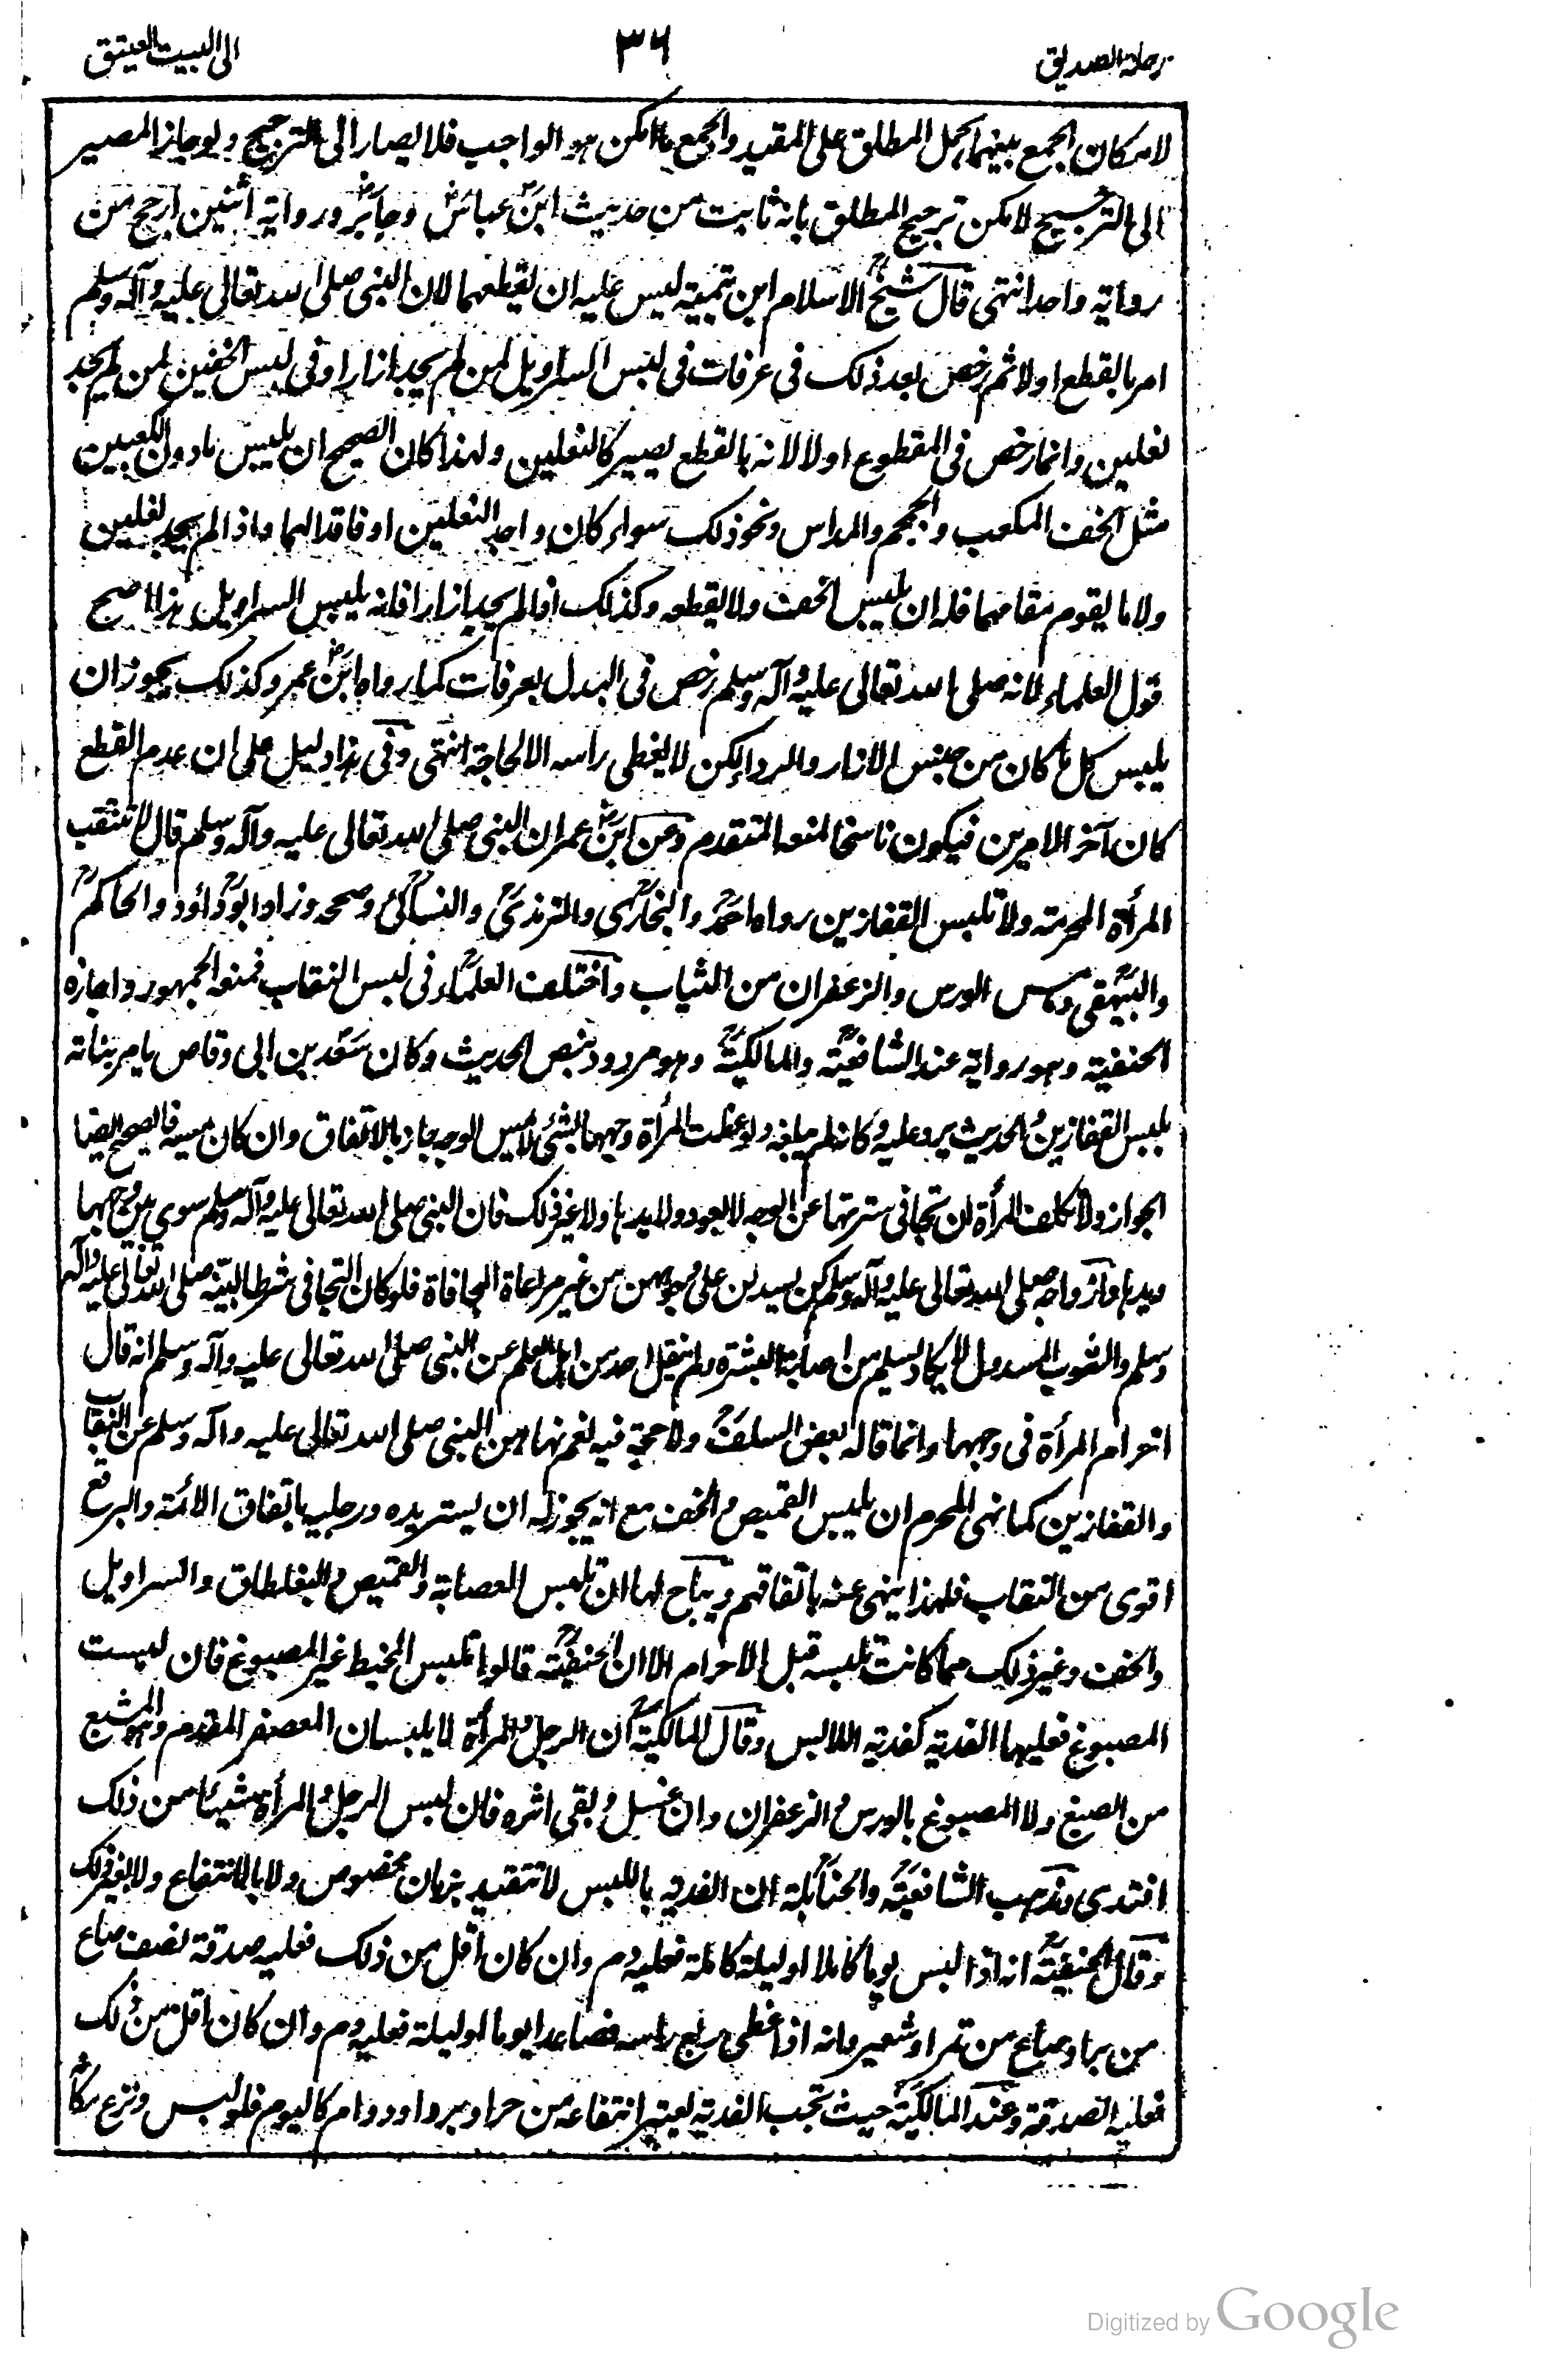 رحلة الصديق
٣٦
الى البيت العتيق
لامكان الجمع بينهما بحمل المطلق على المقيد والجمع ما امكن هو الواجب فلا يصار الى الترجيح ولو جاز المصير
الى الترجيح لامكن ترجيح المطلق بانه ثابت من حديث ابن عباس وجابر ورواية اثنين ارجح من
رواية واحد انتهى قال شيخ الاسلام ابن تيمية ليس عليه ان يقطعهما لان النبي صلى الله تعالى عليه وآله وسلم
امر بالقطع اولا ثم رخص بعد ذلك في عرفات في لبس السراويل لمن لم يجد ازارا وفي لبس الخفين لمن لم يجد
نعلين وانما رخص في المقطوع اولا لانه بالقطع يصير كالنعلين ولهذا كان الصحيح ان يلبس ما دون الكعبين
مثل الخف المكعب والجمجم والمداس ونحو ذلك سواء كان واجد النعلين او فاقدا لهما واذا لم يجد نعلين
ولا ما يقوم مقامهما فله ان يلبس الخف ولا يقطعه وكذلك اذا لم يجد ازارا فانه يلبس السراويل هذا اصح
قول العلماء لانه صلى الله تعالى عليه وآله وسلم رخص في البدل بعرفات كما رواه ابن عمر وكذلك يجوز ان
يلبس كل ما كان من جنس الازار والرداء لكن لا يغطي راسه الا لحاجة انتهى وفي هذا دليل على ان عدم القطع
كان آخر الامرين فيكون ناسخا لمنعه المتقدم وعن ابن عمر ان النبي صلى الله تعالى عليه وآله وسلم قال لا تنتقب
المرأة المحرمة ولا تلبس القفازين رواه احمد والبخاري والترمذي والنسائي وصححه وزاد ابو داؤد والحاكم
والبيهقي وما مس الورس والزعفران من الثياب واختلف العلماء في لبس النقاب فمنعه الجمهور واجازه
الحنفية وهو رواية عند الشافعية والمالكية وهو مردود بنص الحديث وكان سعد بن ابي وقاص يامر بناته
بلبس القفازين والحديث يرد عليه وكانه لم يبلغه ولو غطت المرأة وجهها بشئ لا يمس الوجه جاز بالاتفاق وان كان يمسه فالصحيح ايضا
الجواز ولا تكلف المرأة ان تجافي سترتها عن الوجه لا بعود ولا بيدها ولا غير ذلك فان النبي صلى الله تعالى عليه وآله وسلم سوى بين وجهها
ويديها وازواجه صلى الله تعالى عليه وآله وسلم كن يسدلن على وجوههن من غير مراعاة المجافاة فلو كان التجافي شرطا لبينه صلى الله تعالى عليه وآله
وسلم والثوب المسدول لا يكاد يسلم من اصابة البشرة ولم ينقل احد من اهل العلم عن النبي صلى الله تعالى عليه وآله وسلم انه قال
احرام المرأة في وجهها وانما قاله بعض السلف ولا حجة فيه نعم نهاهن النبي صلى الله تعالى عليه وآله وسلم عن النقاب
والقفازين كما نهى المحرم ان يلبس القميص والخف مع انه يجوز له ان يستر يده ورجليه باتفاق الائمة والبرقع
اقوى من النقاب فلهذا ينهى عنه باتفاقهم ويباح لها ان تلبس العصابة والقميص والبغلطاق والسراويل
والخف وغير ذلك مما كانت تلبسه قبل الاحرام الا ان الحنفية قالوا تلبس المخيط غير المصبوغ فان لبست
المصبوغ فعليها الفدية كفدية اللابس وقال المالكية ان الرجل والمرأة لا يلبسان المعصفر المقدم وهو المشبع
من الصبغ ولا المصبوغ بالورس والزعفران وان غسل وبقي اثره فان لبس الرجل والمرأة شيئا من ذلك
افتدى ومذهب الشافعية والحنابلة ان الفدية باللبس لا تتقيد بزمان مخصوص ولا بالانتفاع ولا بغير ذلك
وقال الحنفية انه اذا لبس يوما كاملا او ليلة كاملة فعليه دم وان كان اقل من ذلك فعليه صدقة نصف صاع
من بر او صاع من تمر او شعير وانه اذا غطى ربع راسه فصاعدا يوما او ليلة فعليه دم وان كان اقل من ذلك
فعليه الصدقة وعند المالكية حيث تجب الفدية يعتبر انتفاعه من حر او برد او دوام كاليوم فلو لبس ونزع مكانه
Digitized by Google